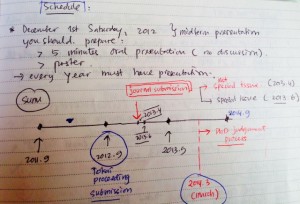 Schedule :
* December 1st Saturday, 2012 } midterm presentation
you should prepare :
> 5 minutes oral presentation ( no discussion)
> poster.
→ every year must have presentation.
journal submission
not
special issue (2013.4)
special issue (2013.6)
2013.4
2013.6
2014.9
2011.9
2012.9
2013.9
PhD judgement process
submission
2014.3
(march)